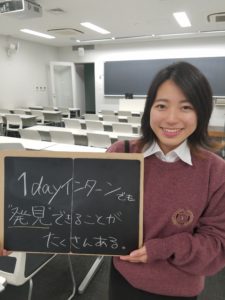 1dayインターンでも
"発見"できることが
たくさんある。